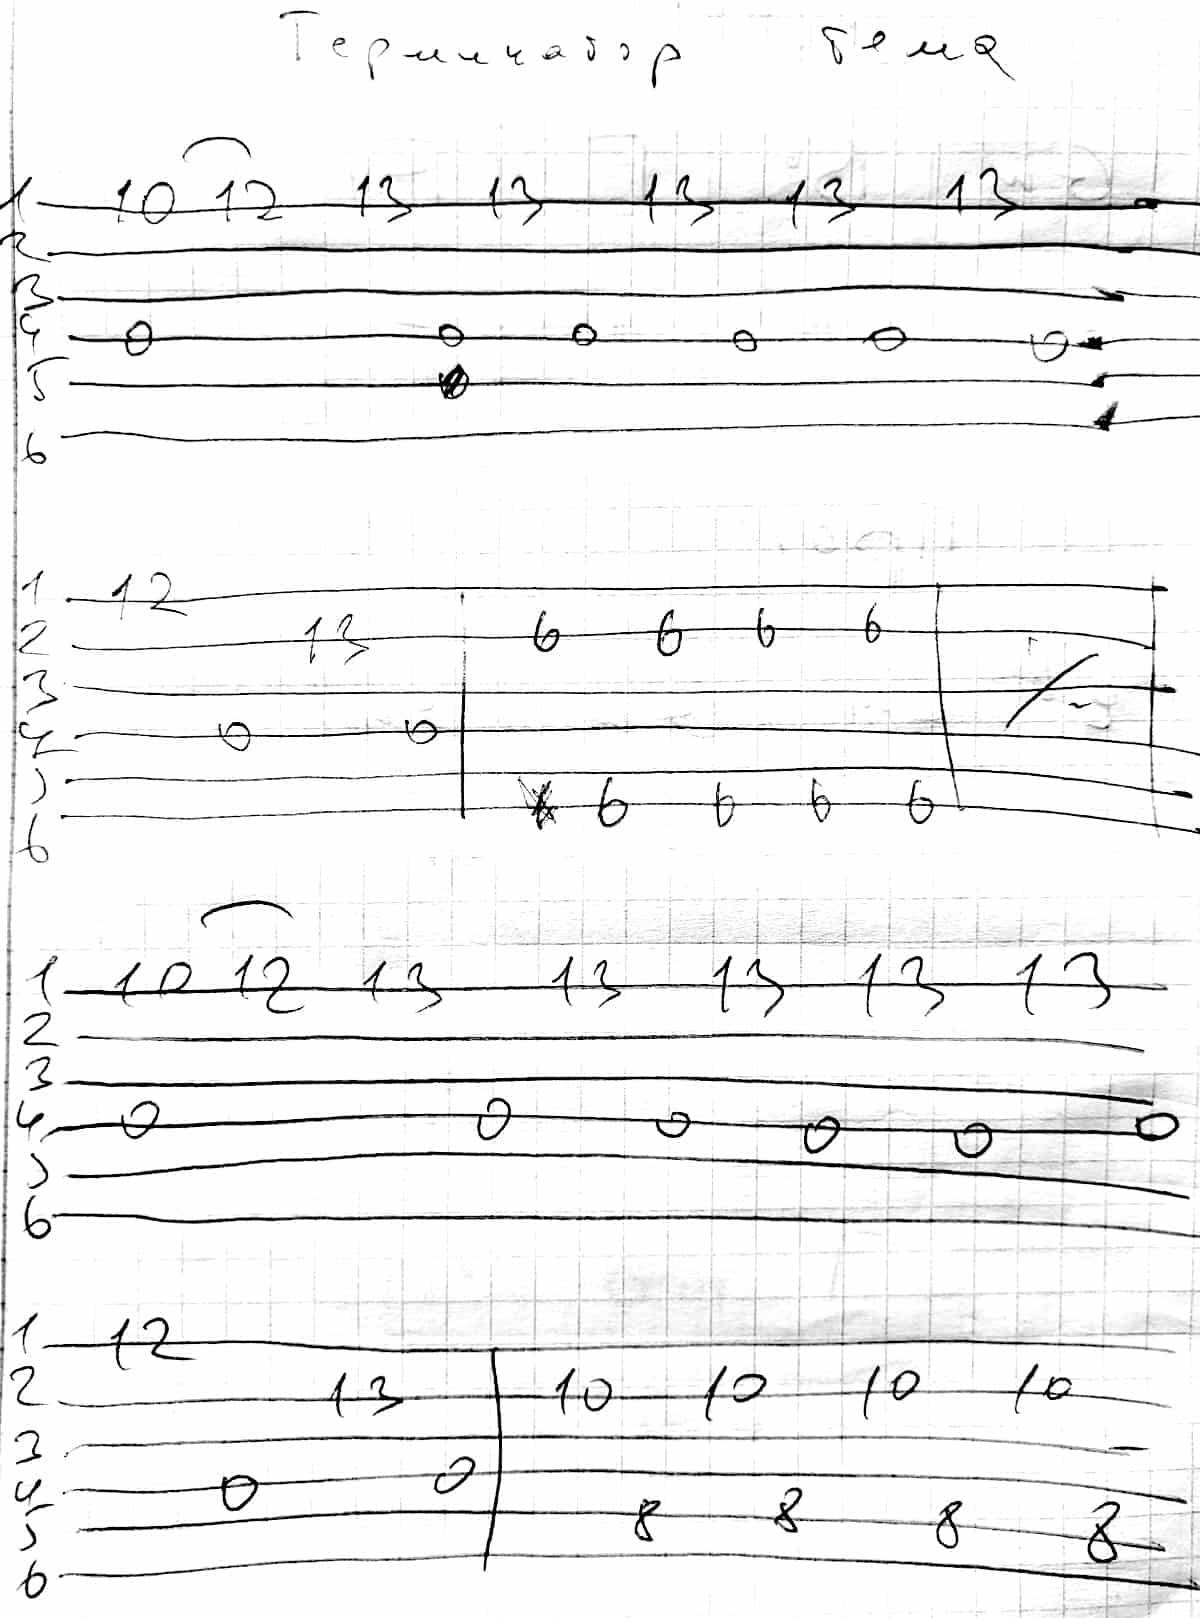 Терминатор тема
1 10 12 13 13 13 13 13
2
3
4 0 0 0 0 0 0
5
6
1 12
2 13 6 6 6 6
3
4 0 0
5
6 6 6 6 6
1 10 12 13 13 13 13 13
2
3
4 0 0 0 0 0 0
5
6
1 12
2 13 10 10 10 10
3
4 0 0
5 8 8 8 8
6